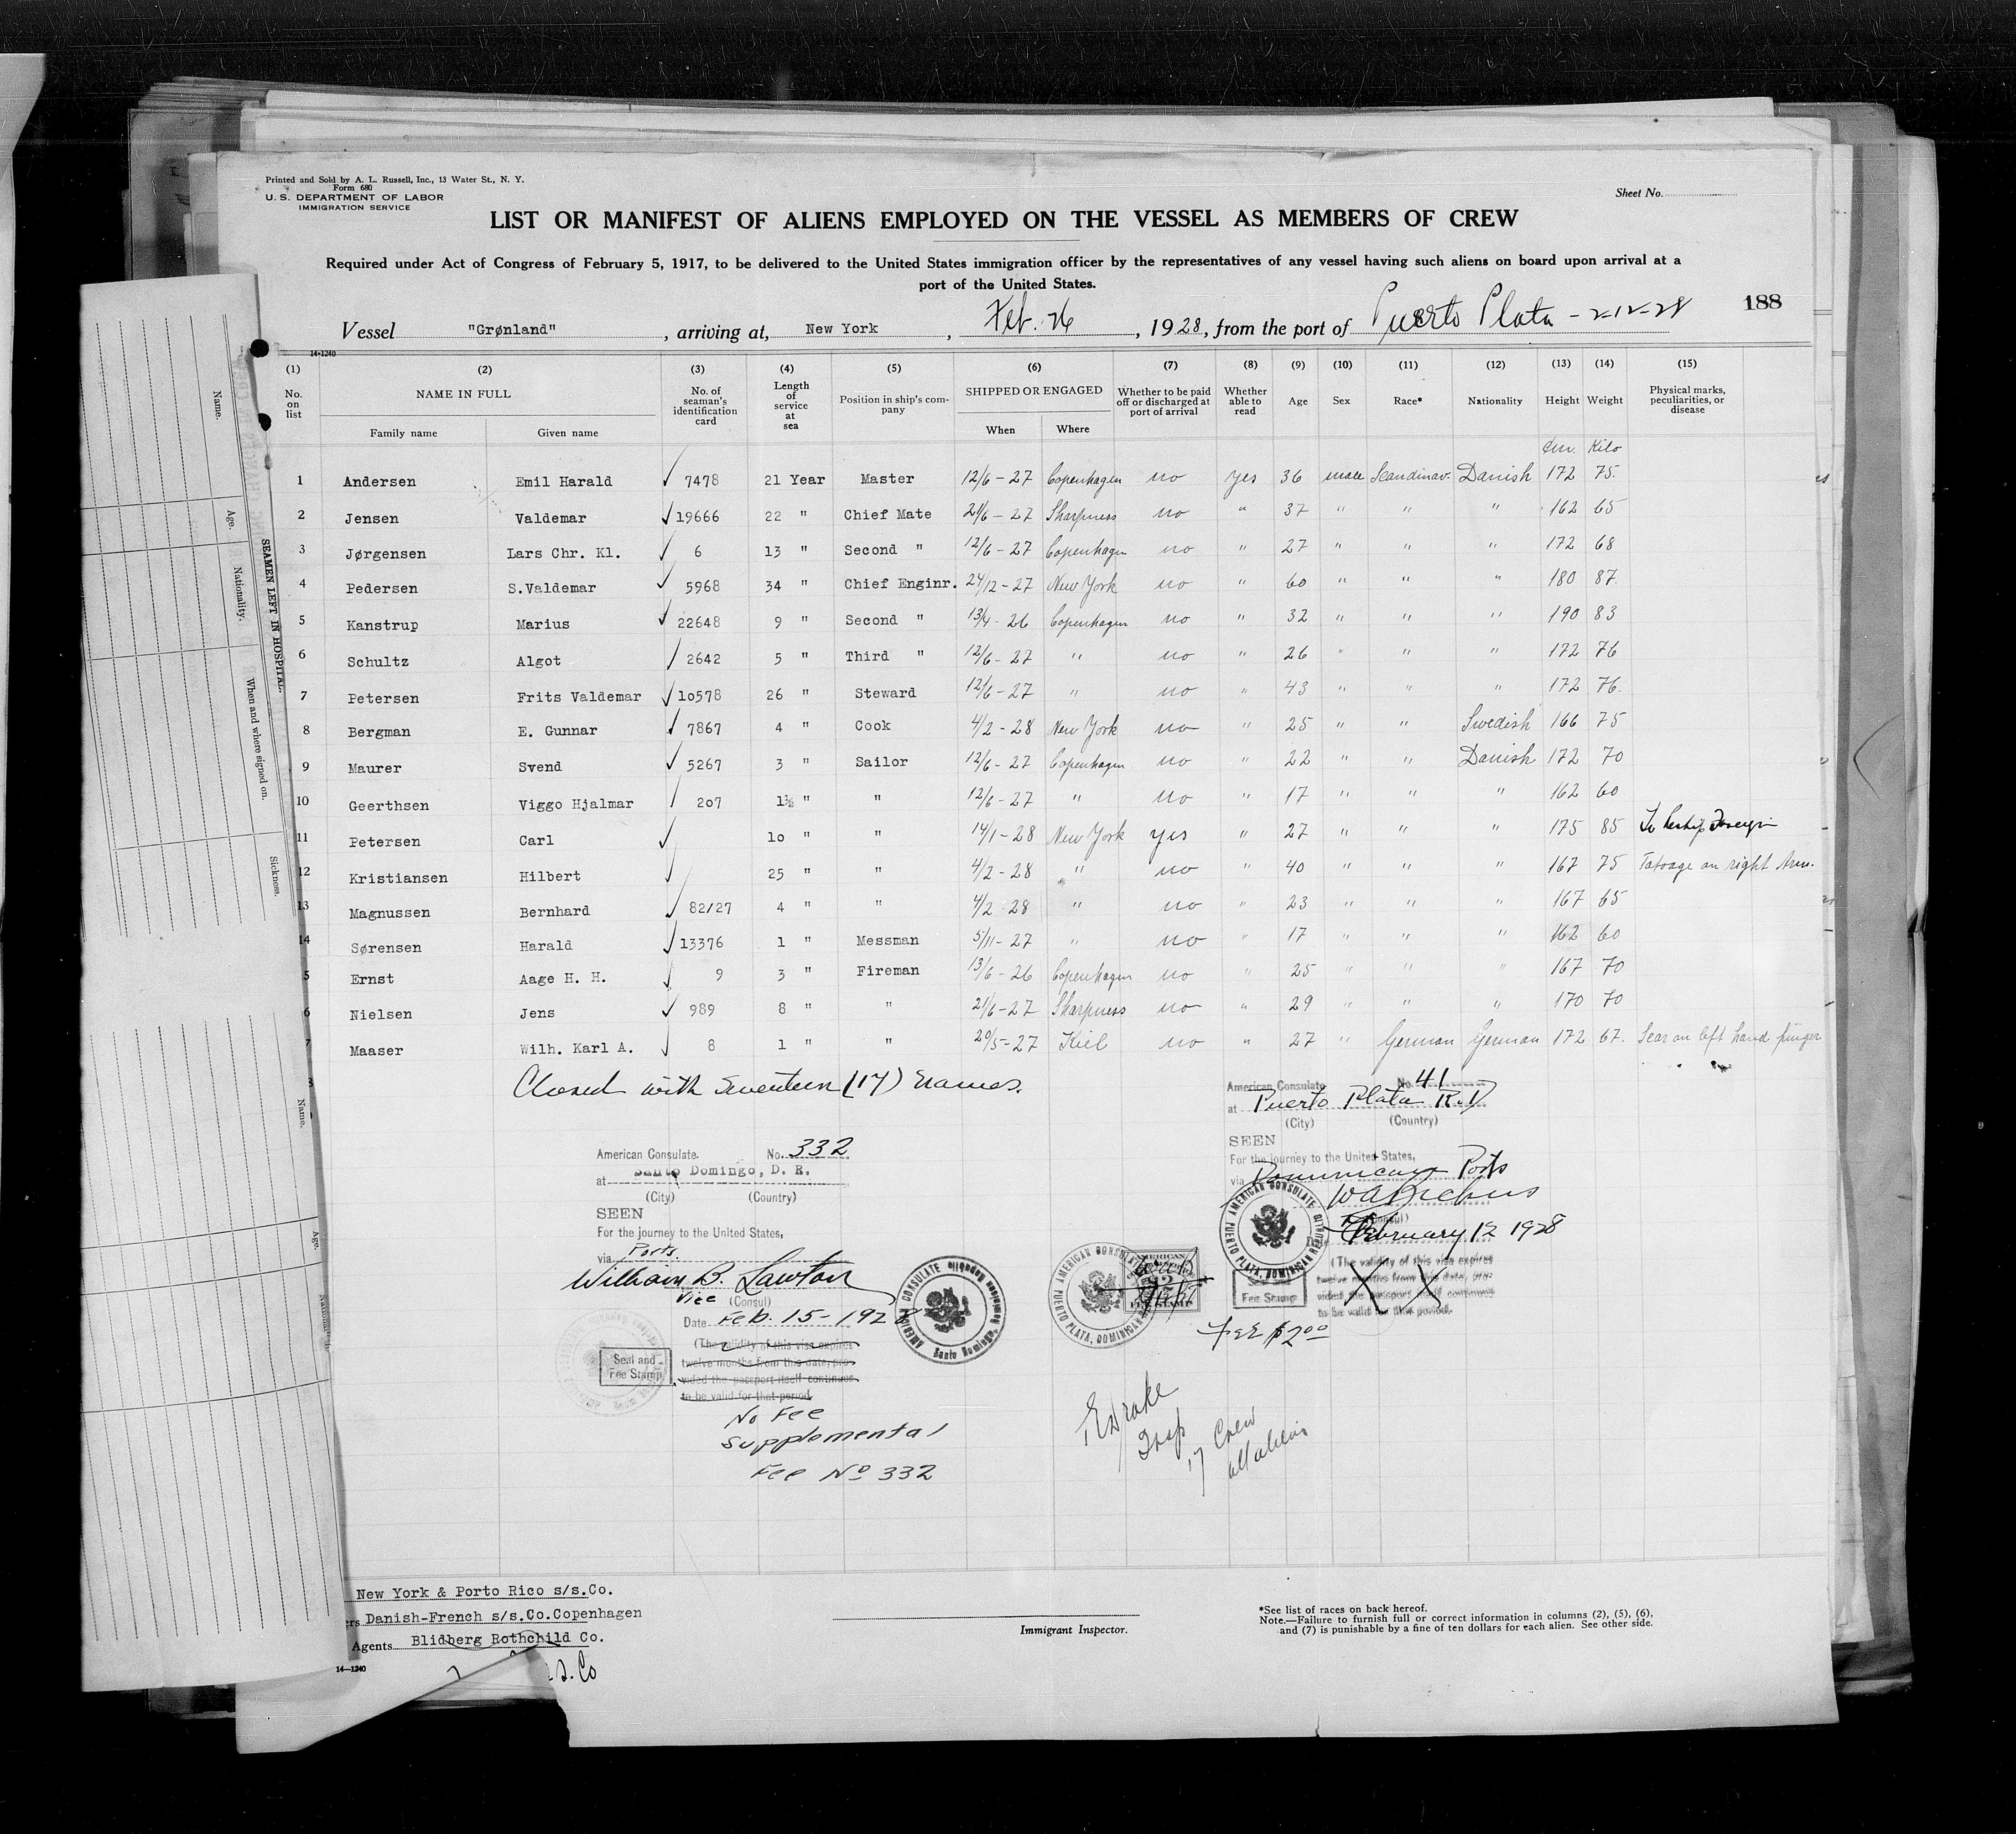 Printed and Sold by A. L. Russell, Inc., 13 Water St., N. Y.
Form 680
U. S. DEPARTMENT OF LABOR
IMMIGRATION SERVICE
Sheet No.
LIST OR MANIFEST OF ALIENS EMPLOYED ON THE VESSEL AS MEMBERS OF CREW
Required under Act of Congress of February 5, 1917, to be delivered to the United States immigration officer by the representatives of any vessel having such aliens on board upon arrival at a
port of the United States.
188
Vessel "Grønland", arriving at, New York, Feb. 26, 1928, from the port of Puerto Plata - 2-12-28
14-1240
(1) (2) (3) (4) (5) (6) (7) (8) (9) (10) (11) (12) (13) (14) (15)
No. on list NAME IN FULL No. of seaman's identification card Length of service at sea Position in ship's company SHIPPED OR ENGAGED Whether to be paid off or discharged at port of arrival Whether able to read Age Sex Race* Nationality Height Weight Physical marks, peculiarities, or disease
Family name Given name When Where
Cm. Kilo
1 Andersen Emil Harald ✓ 7478 21 Year Master 12/6-27 Copenhagen no yes 36 male Scandinav. Danish 172 75.
2 Jensen Valdemar ✓ 19666 22 " Chief Mate 21/6-27 Sharpness no " 37 " " " 162 65
3 Jørgensen Lars Chr. Kl. ✓ 6 13 " Second " 12/6-27 Copenhagen no " 27 " " " 172 68
4 Pedersen S.Valdemar ✓ 5968 34 " Chief Enginr. 24/12-27 New York no " 60 " " " 180 87.
5 Kanstrup Marius ✓ 22648 9 " Second " 13/4-26 Copenhagen no " 32 " " " 190 83
6 Schultz Algot ✓ 2642 5 " Third " 12/6-27 " no " 26 " " " 172 76
7 Petersen Frits Valdemar ✓ 10578 26 " Steward 12/6-27 " no " 43 " " " 172 76.
8 Bergman E. Gunnar ✓ 7867 4 " Cook 4/2-28 New York no " 25 " " Swedish 166 75
9 Maurer Svend ✓ 5267 3 " Sailor 12/6-27 Copenhagen no " 22 " " Danish 172 70
10 Geerthsen Viggo Hjalmar / 207 1½ " " 12/6-27 " no " 17 " " " 162 60
11 Petersen Carl ✓ 10 " " 14/1-28 New York yes " 27 " " " 175 85 To Reship Foreign
12 Kristiansen Hilbert ✓ 25 " " 4/2-28 " no " 40 " " " 167 75 Tatoage on right Arm.
13 Magnussen Bernhard ✓ 82/27 4 " " 4/2 28 " no " 23 " " " 167 65
14 Sørensen Harald ✓ 13376 1 " Messman 5/11-27 " no " 17 " " " 162 60
5 Ernst Aage H. H. ✓ 9 3 " Fireman 13/6-26 Copenhagen no " 25 " " " 167 70
6 Nielsen Jens ✓ 989 8 " " 21/6-27 Sharpness no " 29 " " " 170 70
7 Maaser Wilh. Karl A. ✓ 8 1 " " 20/5-27 Kiel no " 27 " German German 172 67. Scar on left hand finger
Closed with Seventeen (17) names.
American Consulate No. 41
at Puerto Plata R.D
(City) (Country)
SEEN
For the journey to the United States,
via Dominican Ports
(Consul)
February 12 1928
(The validity of this visa expires
twelve months from this date, pro-
vided the passport itself continues
to be valid for this period.
X X
Seal and
Fee Stamp
Fee $2.00
AMERICAN CONSULATE PUERTO PLATA, DOMINICAN REPUBLIC
AMERICAN CONSULATE PUERTO PLATA, DOMINICAN
AMERICAN
FEE STAMP
American Consulate. No. 332
at Santo Domingo, D. R.
(City) (Country)
SEEN
For the journey to the United States,
via Ports.
William B. Lawton
Vice (Consul)
Date Feb. 15-1928
(The validity of this visa expires
twelve months from this date, pro-
vided the passport itself continues
to be valid for that period
Seal and
Fee Stamp
AMERICAN CONSULATE Santo Domingo, Dominican Republic
No Fee
Supplemental
Fee No 332
EDrake
Insp
17 Crew
all aliens
New York & Porto Rico s/s.Co.
ers Danish-French s/s.Co.Copenhagen
Agents Blidberg Rothchild Co.
s.s.Co
14—1240
Immigrant Inspector.
*See list of races on back hereof.
Note.—Failure to furnish full or correct information in columns (2), (5), (6),
and (7) is punishable by a fine of ten dollars for each alien. See other side.
SEAMEN LEFT IN HOSPITAL.
Name. Age. Nationality. When and where signed on. Sickness.
Name. Age. Nationality